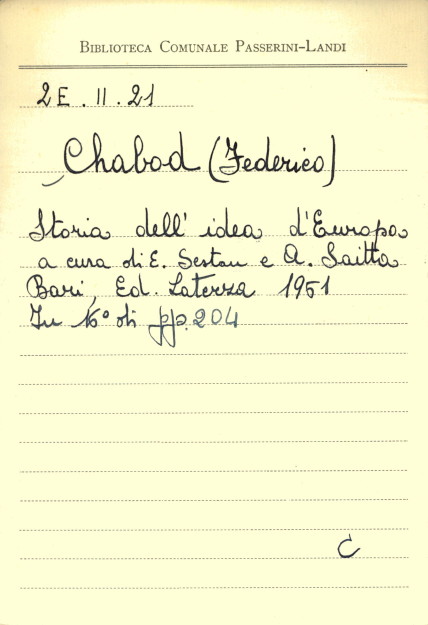 BIBLIOTECA COMUNALE PASSERINI-LANDI
2E.II.21
Chabod (Federico)
Storia dell' idea d'Europa
a cura di E. Sestan e A. Saitta
Bari, Ed. Laterza 1961
In 16° di pp. 204
C